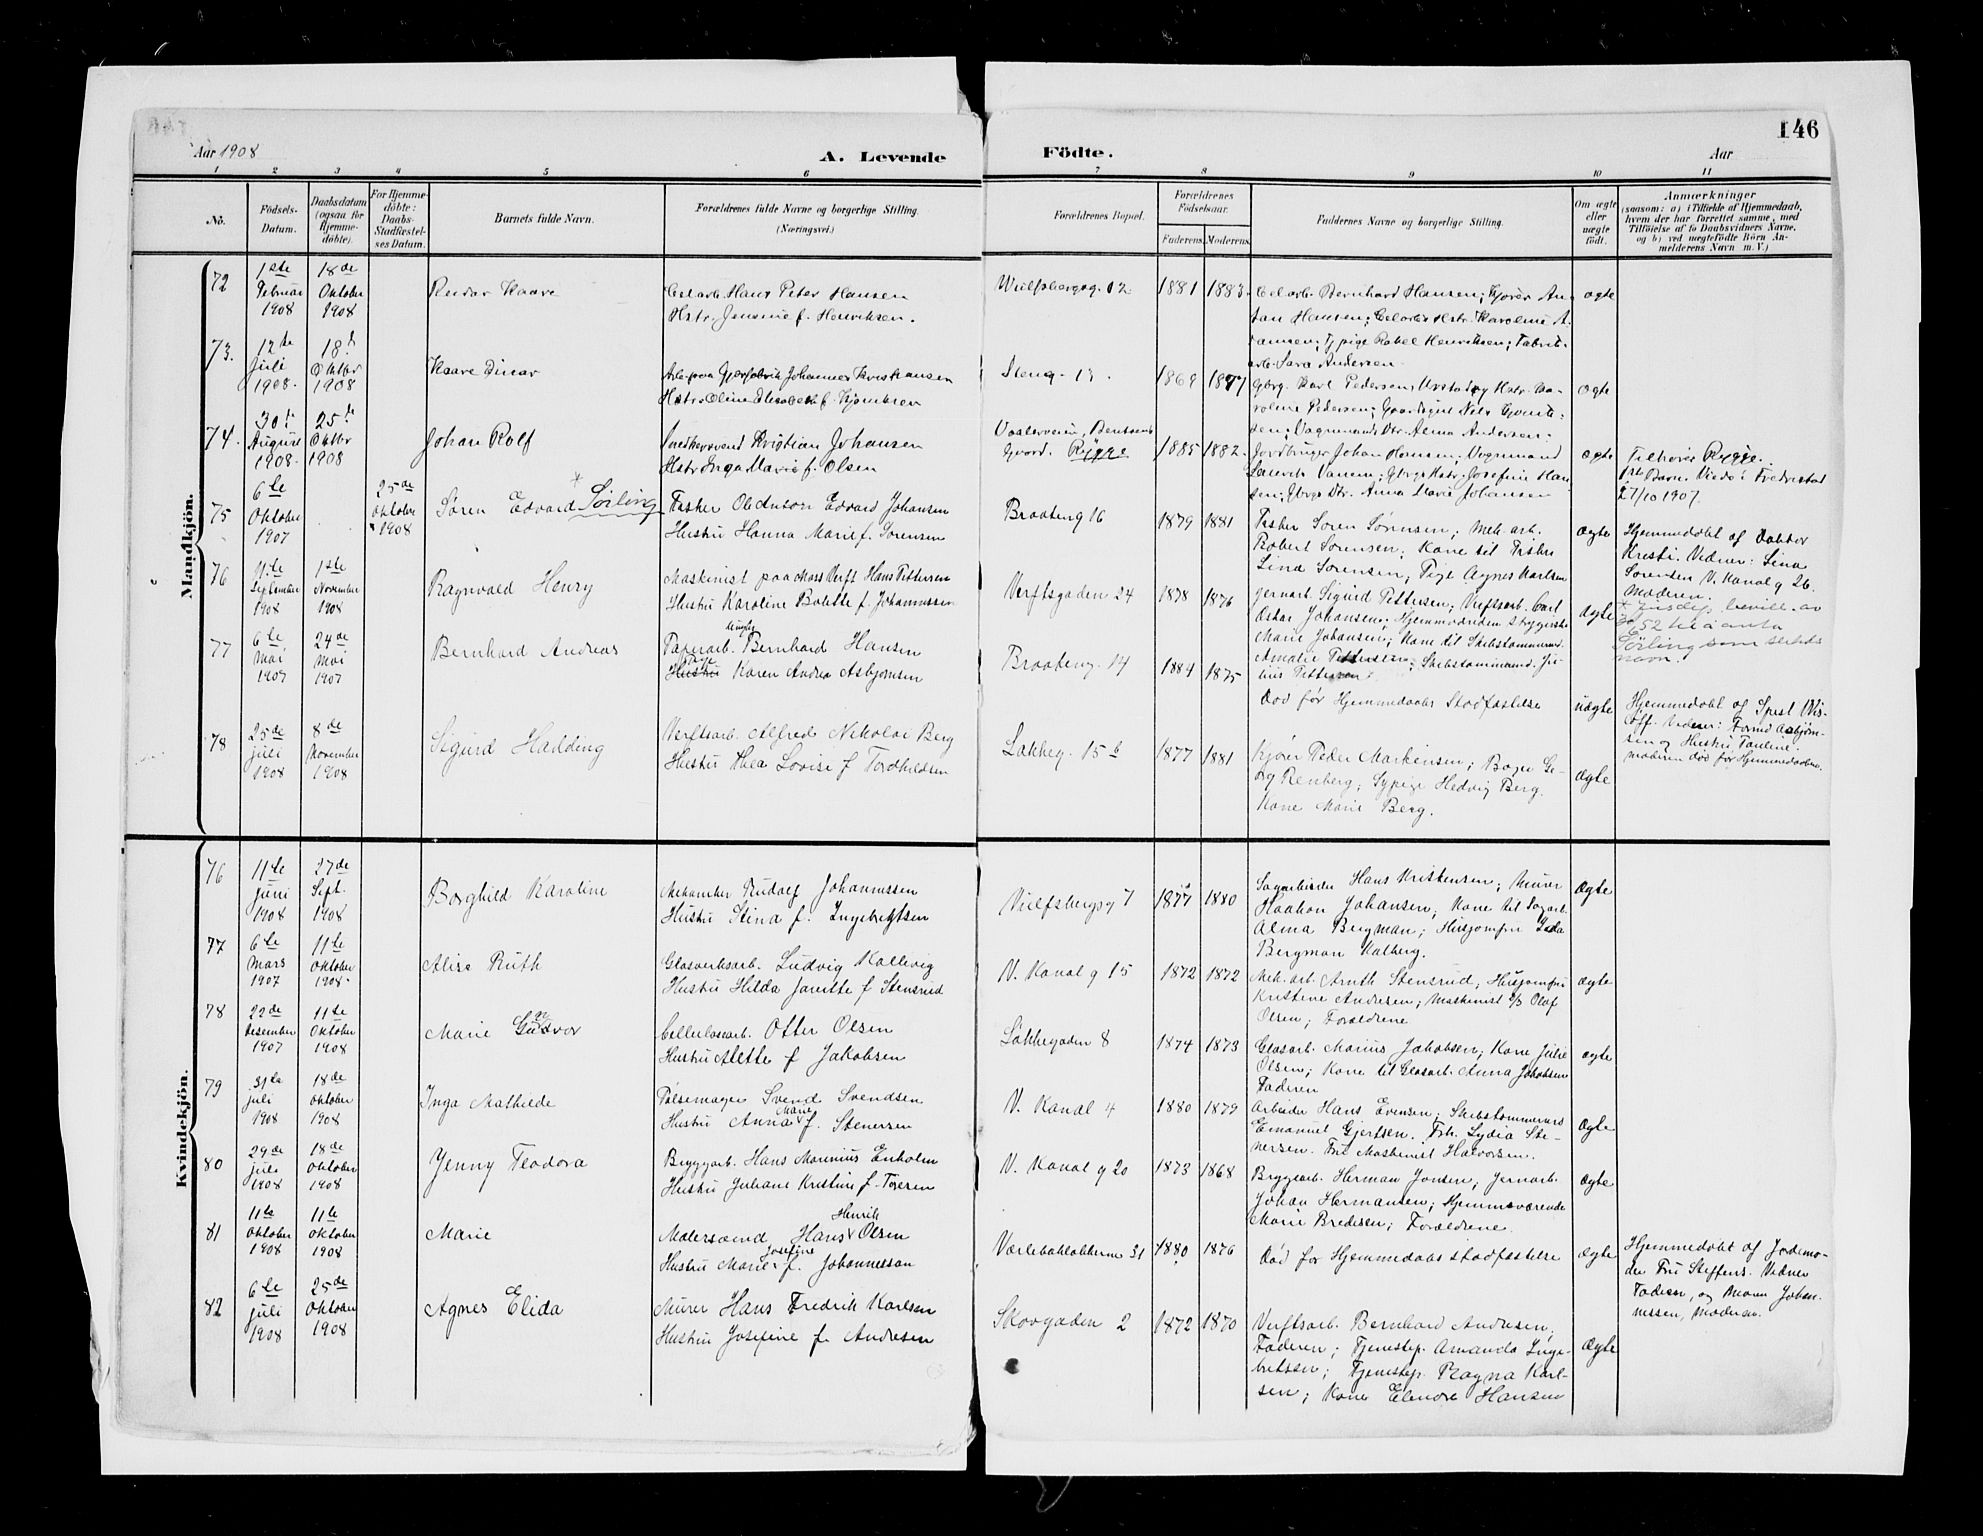 146
Aar 1908
A. Levende
Födte.
Aar
1 2 3 4 5 6 7 8 9 10 11
No.
Födsels-
Datum.
Daabsdatum
(ogsaa for
Hjemme-
döbte).
For Hjemme-
döbte:
Daabs-
Stadfæstel-
ses Datum.
Barnets fulde Navn.
Forældrenes fulde Navne og borgerlige Stilling.
(Næringsvei.)
Forældrenes Bopæl.
Forældrenes
Födselsaar.
Faderens. Moderens.
Faddernes Navne og borgerlige Stilling.
Om ægte
eller
uægte
født.
Anmærkninger
(saasom: a) i Tilfælde af Hjemmedaab,
hvem der har forrettet samme, med
Tilföielse af to Daabsvidners Navne,
og b) ved uægtefödte Börn An-
melderens Navn m. V.)
Mandkjön.
72
1ste
Februar
1908
18de
Oktober
1908
Reidar Kaare
Celarb Hans Peter Hansen
Hstr. Jensine f. Henriksen.
Wulfsbergsg. 12
1881 1883.
Celarb. Bernhard Hansen; Kjører An-
ton Hansen; Celarbs Hstr. Karoline A-
; Typige Rakel Henriksen; Fabrik-
arb. Sara Andersen
ægte
73.
12te
Juli
1908.
18d
Oktbr
1908
Kaare Einar
Arb. paa Johannes Kristiansen
Hstr. Oline Elisabeth f.
Steng. 13.
1869 1877
Gbrg. Karl Pedersen, og Hstr. Ka-
roline Pedersen; Nils
sen; Vognmands Dtr. Alma Andersen.
ægte
74.
30te
August
1908.
25de
Oktbr
1908
Johan Rolf
Snedkersvend Kristian Johansen
Hstr. Inga Marie f. Olsen
Vaalerveien, Berntsens
Gaard. Rygge
1885 1882.
Jordbruger Johan Hansen; Vognmand
Vanem; Gbrgs Hstr. Josefine Han-
sen; Gbrgs Dtr. Anna Marie Johansen
ægte
Tilhører Rygge.
1ste Barn. Viede i Fredrikstad
27/10 1907.
75
6te
Oktober
1907
25de
Oktober
1908
Søren Edvard * Sørling
Fisker Ole Anton Edvard Johansen
Hustru Hanna Marie f. Sørensen
Braateng 16
1879 1881
Fisker Søren Sørensen; Mek. arb.
Robert Sørensen; Kone til Fisker
Lina Sørensen; Pige Agnes Karlsen
ægte
Hjemmedøbt af Doktor
Kresti. Vidner: Lina
Sørensen V. Kanal g 26.
Moderen.
* Jusdep. bevill. av
52 til å anta
Sørling som slekts-
navn.
76
11te
September
1908
1ste
November
1908
Ragnvald Henry
Maskinist paa Moss Verft Hans Pettersen
Hustru Karoline Bolette f. Johannessen
Verftsgaden 24
1878 1876
Jernarb. Sigurd Pettersen; Verftsarb. Carl
Oskar Johansen; Hjemmeværende Strygerske
Marie Johansen; Kone til Skibstømmermand
Amalie Pettersen; Skibstømmermand. Ju-
lius Pettersen
ægte
77
6te
Mai
1907
24de
Mai
1907
Bernhard Andreas
Papirarb. Ungkar Bernhard Hansen
Hustru Pige Karen Andrea Asbjørnsen
Braateng. 14
1884 1875
Død før Hjemmedaabs Stadfæstelse
uægte
Hjemmedøbt af Spest. Mis.
Off. Vidner: Formd Asbjørn-
sen og Hustru Pauline.
Moderen død før Hjemmedaaben.
78
25de
Juli
1908
8de
November
1908
Sigurd Hadding
Verftsarb. Alfred Nikolai Berg
Hustru Thea Lovise f Tordhildsen
Løkkeg. 15b
1877 1881
Kjører Peder Markensen; Bager Ge-
org Renberg; Sypige Hedvig Berg.
Kone Marie Berg.
ægte
Kvindekjön.
76
11te
Juni
1908
27de
Sept.
1908
Borghild Karoline
Mekaniker Rudolf Johannessen
Hustru Stina f. Ingebrigtsen
Wulfsbergsg 7
1877 1880
Sagarbeider Hans Kristensen; Murer
Haakon Johansen; Kone til Sagarb.
Alma Bergman; Husjomfru
Bergman Kalberg.
ægte
77
6te
Mars
1907
11te
Oktober
1908.
Alise Ruth
Glasverksarb. Ludvig Kallevig
Hustru Hilda Janette f Stensrud
V. Kanal g 15
1872 1872
Mek. arb. Arnth Stensrud; Husjomfru
Kristine Andersen; Maskinist S/S Olaf
Olsen; Forældrene
ægte
78
22de
Desember
1907
11te
Oktober
1908
Marie Gudvor
Cellulosearb. Otter Olsen
Hustru Alette f Jakobsen
Løkkegaden 8
1874 1873
Glasarb. Marius Jakobsen; Kone Julie
Olsen; Kone til Glasarb. Anna Jakobsen
Faderen
ægte
79
31te
Juli
1908
18de
Oktober
1908
Inga Mathilde
Pølsemager Svend Svendsen
Hustru Anna Marie f. Stenersen
V. Kanal 4
1880 1879
Arbeider Hans Evensen; Skibstømmermd
Emanuel Gjertsen. Frk. Lydia Ste-
nersen. Fru Maskinist Halvorsen.
ægte
80
29de
Juli
1908
18de
Oktober
1908
Jenny Teodora
Bryggarb. Hans Marinius Enholm
Hustru Juliane Kristine f. Toresen
V. Kanal g 20
1873 1868
Bryggearb. Herman Jonsen; Jernarb.
Johan Hermansen; Hjemmeværende
Marie Bredesen; Forældrene.
ægte
81
11te
Oktober
1908
11te
Oktober
1908
Marie
Malersvend Hans Henrik Olsen
Hustru Marie Josefine f. Johannesson
Værlebakløkkerne 31
1880 1876
Død før Hjemmedaabs stadfæstelse
ægte
Hjemmedøbt af Jordemo-
der Fru Steffens. Vidner
Faderen, og Maren Johan-
nessen, Moderen.
82
6te
Juli
1908
25de
Oktober
1908
Agnes Elida
Murer Hans Fredrik Karlsen
Hustru Josefine f. Andresen
Skovgaden 2
1872 1870
Verftsarb. Bernhard Andresen;
Faderen; Tjenestep. Amanda Inge-
bretsen; Tjenestep. Ragna Karl-
sen; Kone Elende Hansen
ægte